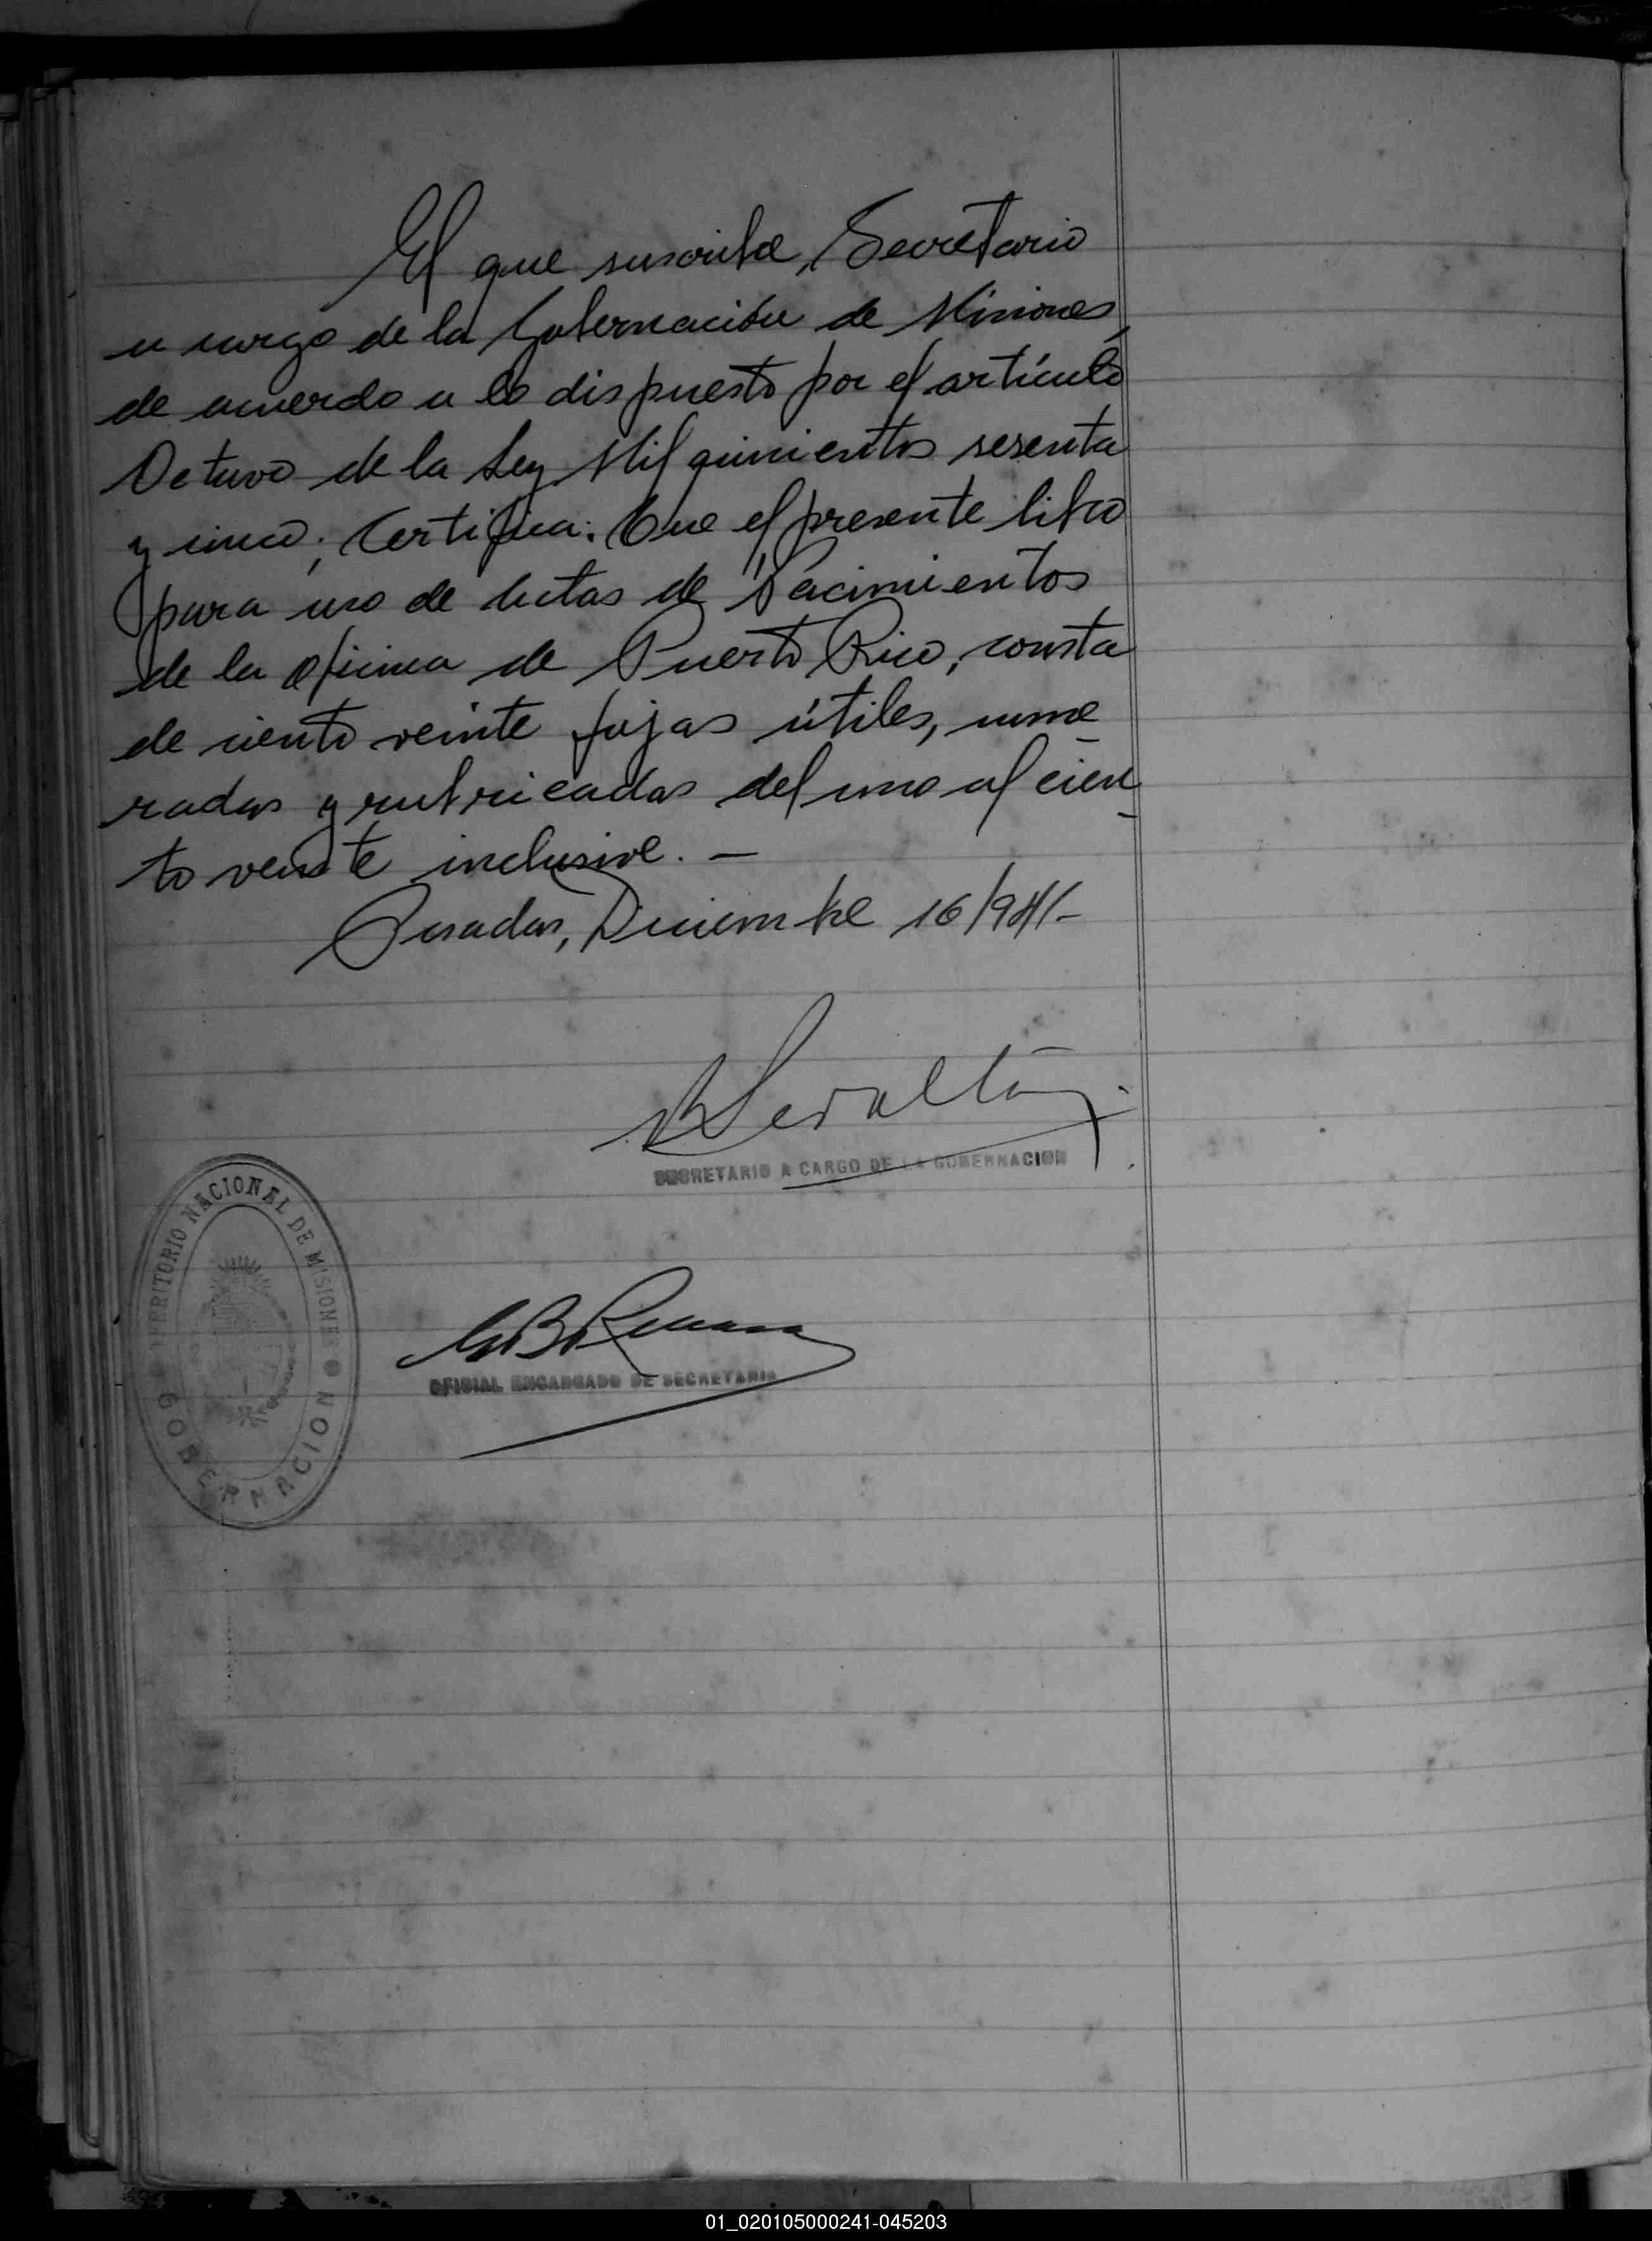 El que suscribe, Secretario
a cargo de la Gobernación de Misiones,
de acuerdo a lo dispuesto por el artículo
Octavo de la Ley Mil quinientos sesenta
y cinco; Certifica: Que el presente libro
para uso de Actas de Nacimientos
de la oficina de Puerto Rico, consta
de ciento veinte fojas útiles, nume-
radas y rubricadas del uno al cien-
to veinte inclusive. —
Posadas, Diciembre 16/941-
SECRETARIO A CARGO DE LA GOBERNACION
TERRITORIO NACIONAL DE MISIONES
GOBERNACION
OFICIAL ENCARGADO DE SECRETARIA
01_020105000241-045203